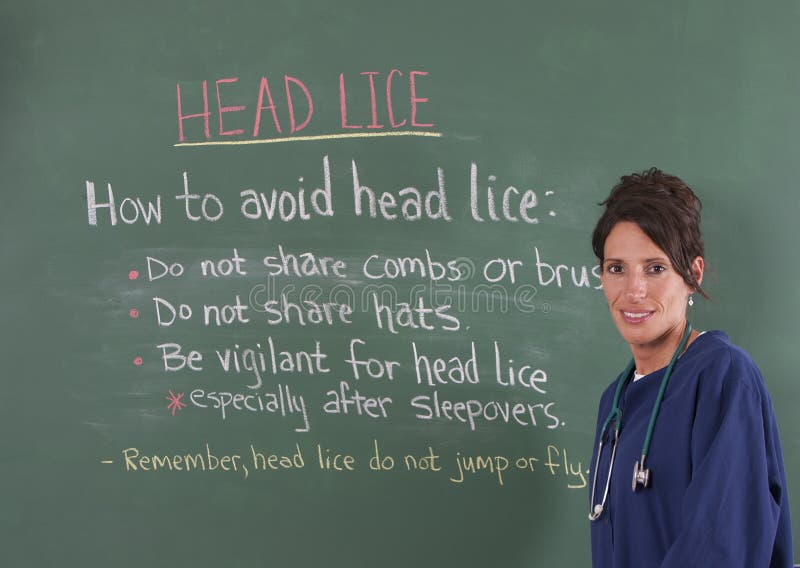 HEAD LICE
How to avoid head lice:
• Do not share combs or brus
• Do not share hats.
• Be vigilant for head lice
* especially after sleepovers.
- Remember, head lice do not jump or fly.
dreamstime.com